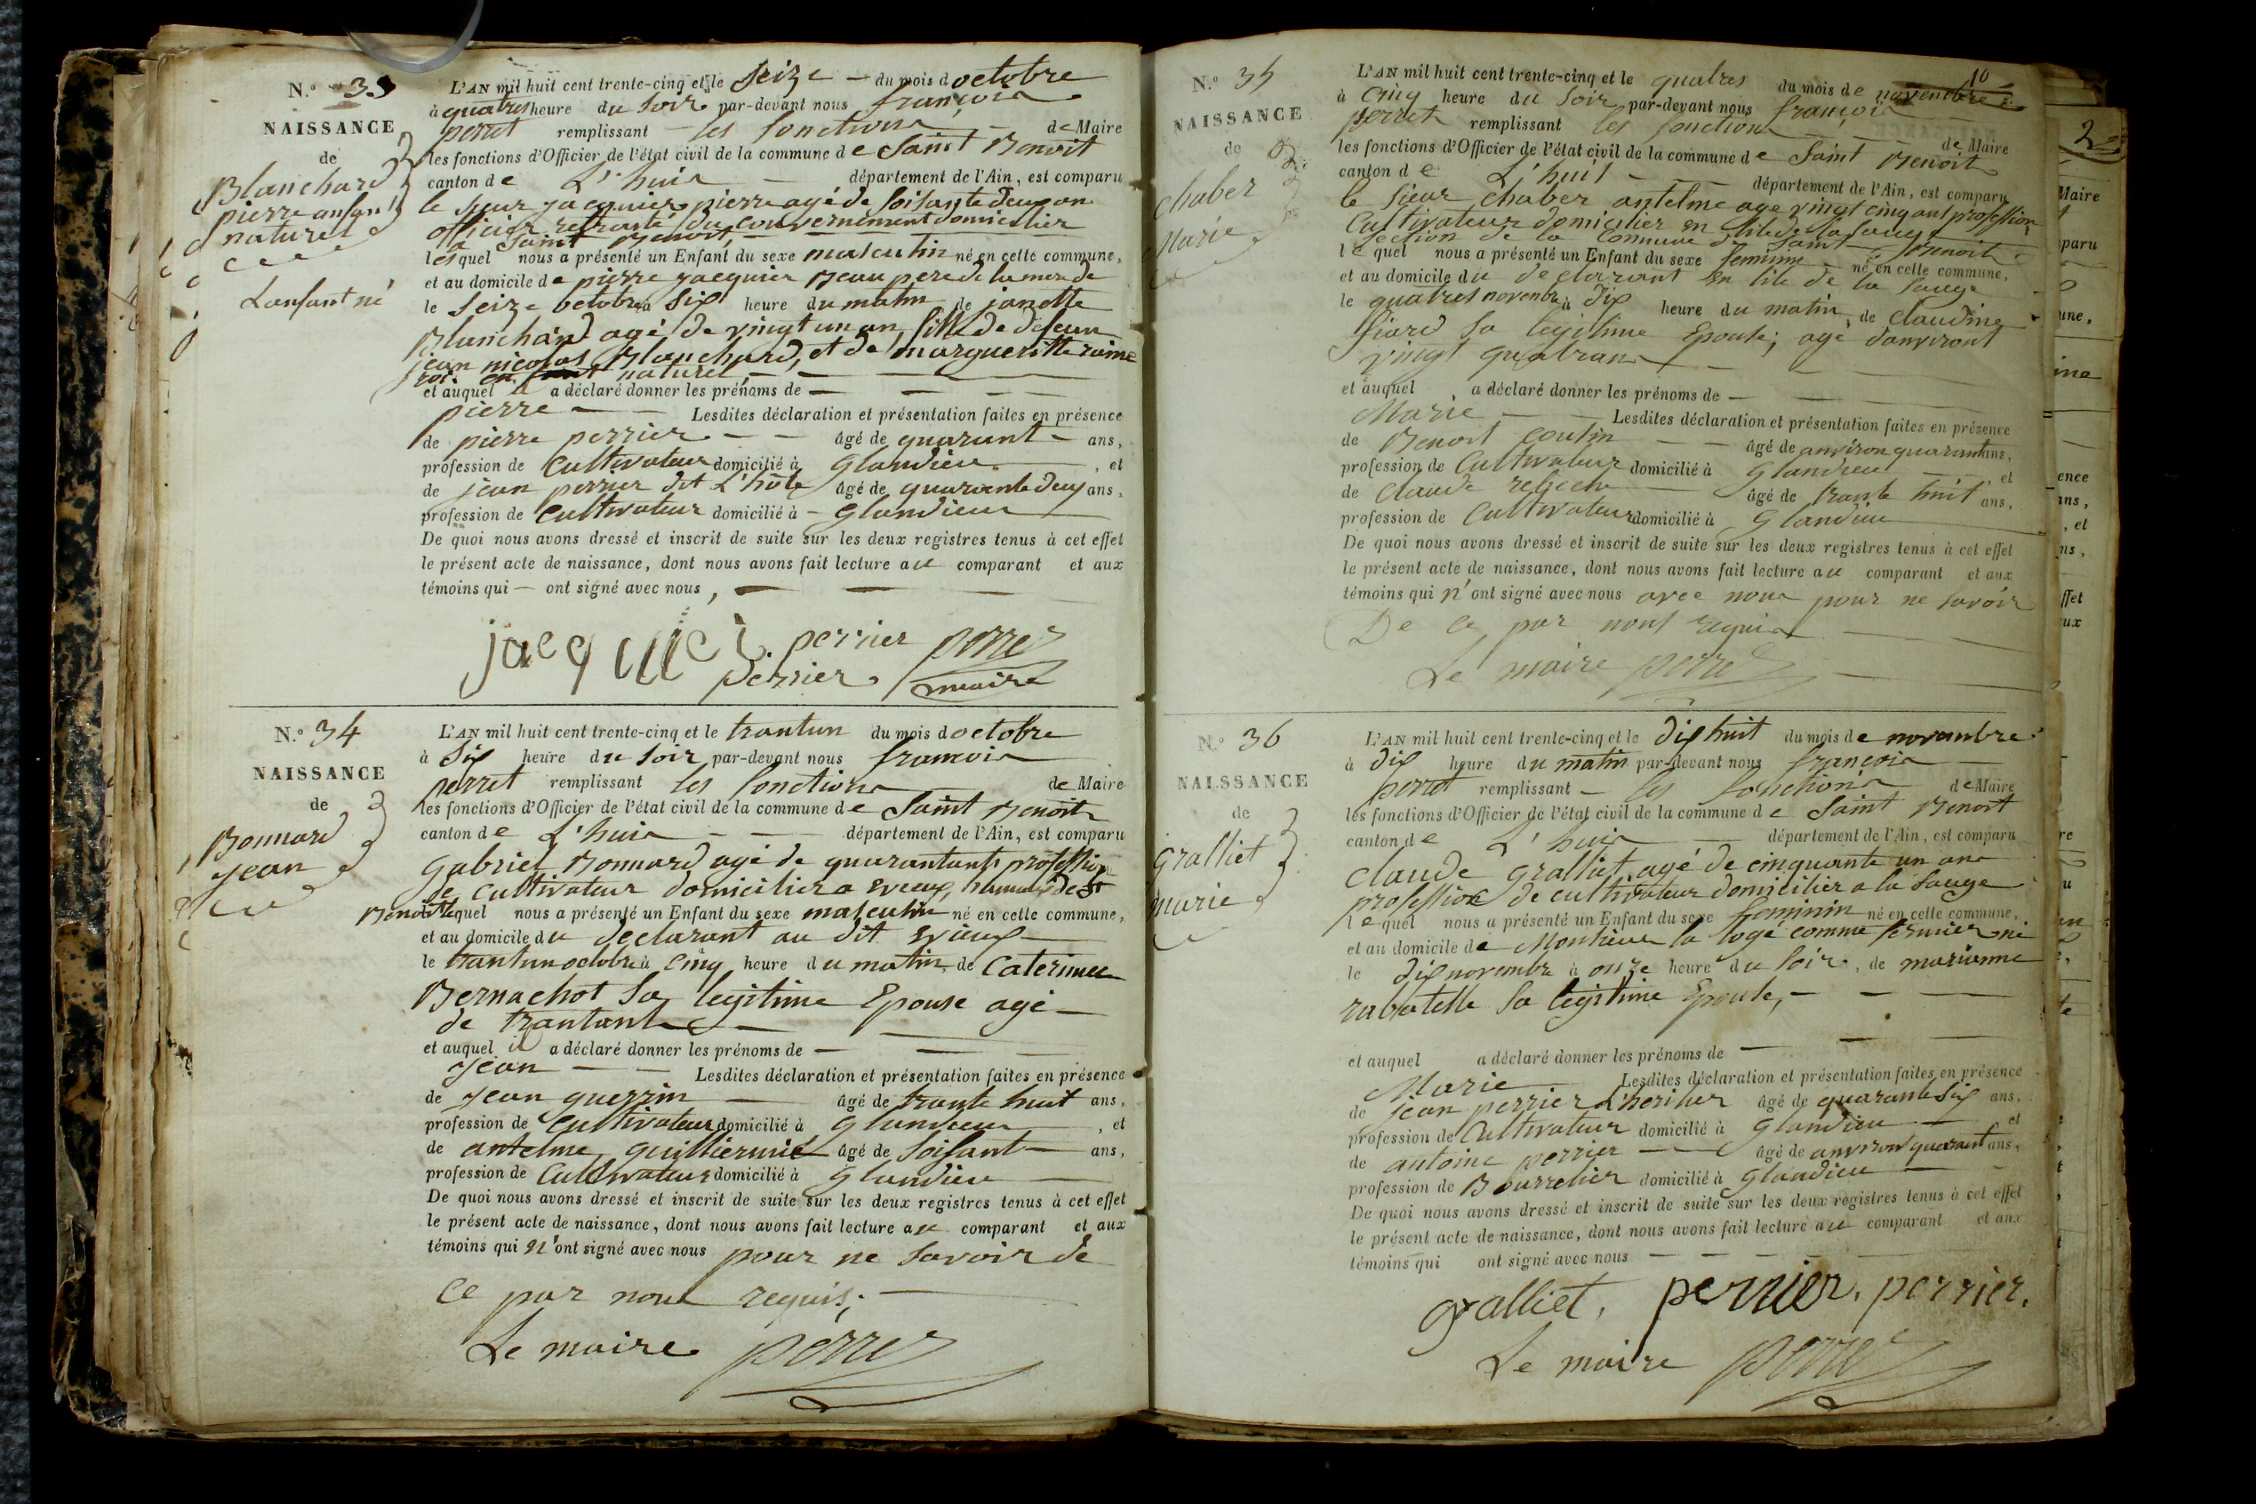 N.º 33
NAISSANCE
de
Blanchard
pierre anfant
naturel
L'anfant né
L'AN mil huit cent trente-cinq et le seize du mois d octobre
à quatres heure du soir par-devant nous françois
perret remplissant les fonctions de Maire
les fonctions d'Officier de l'état civil de la commune de Saint Benoit
canton de L'huis département de l'Ain, est comparu
le sieur jacquier pierre agé de soisante deux an
officier retraité du gouvernement domicilier
a Saint Benoit,
lesquel nous a présenté un Enfant du sexe masculin né en cette commune,
et au domicile de pierre jacquier Beau pere de la mere de
le seize octobre à six heure du matin de janette
Blanchard agé de vingt un an, fille de defeun
jean nicolas Blanchard, et de margueritte
naturel,
et auquel il a déclaré donner les prénoms de
pierre Lesdites déclaration et présentation faites en présence
de pierre perrier âgé de quarant ans,
profession de Cultivateur domicilié à Glandieu, et
de jean perrier dit L'hôte âgé de quarante deux ans,
profession de Cultivateur domicilié à Glandieu
De quoi nous avons dressé et inscrit de suite sur les deux registres tenus à cet effet
le présent acte de naissance, dont nous avons fait lecture au comparant et aux
témoins qui ont signé avec nous,
jacquier. perrier perret
perrier maire
N.º 34
NAISSANCE
de
Bonnard
jean
L'AN mil huit cent trente-cinq et le trantun du mois d octobre
à six heure du soir par-devant nous françois
perret remplissant les fonctions de Maire
les fonctions d'Officier de l'état civil de la commune de Saint Benoit
canton de L'huis département de l'Ain, est comparu
Gabriel Bonnard agé de quarantant profession
de cultivateur domicilier a evieux, hamau de St
Benoit lequel nous a présenté un Enfant du sexe masculin né en cette commune,
et au domicile du declarant au dit evieux
le trantun octobre à cinq heure du matin, de caterinne
Bernachot sa legitime Epouse agé
de trantant
et auquel il a déclaré donner les prénoms de
jean Lesdites déclaration et présentation faites en présence
de jean guerrin âgé de trante huit ans,
profession de Cultivateur domicilié à Glandieu, et
de antelme guilliermié âgé de soisant ans,
profession de Cultivateur domicilié à Glandieu
De quoi nous avons dressé et inscrit de suite sur les deux registres tenus à cet effet
le présent acte de naissance, dont nous avons fait lecture au comparant et aux
témoins qui n'ont signé avec nous pour ne savoir de
ce par nous requis;
Le maire perret
10
N.º 35
NAISSANCE
de
chaber
Marie
L'AN mil huit cent trente-cinq et le quatres du mois de novembre
à cinq heure du soir par-devant nous françois
perret remplissant les fonctions de Maire
les fonctions d'Officier de l'état civil de la commune de Saint Benoit
canton de L'huis département de l'Ain, est comparu
le sieur chaber antelme age vingt cinq ans profession
Cultivateur domicilier en lile de la sauge
section de la Commune de Saint Bennoit
lequel nous a présenté un Enfant du sexe feminine né en cette commune,
et au domicile du declarant en lile de la sauge
le quatres novembre à dix heure du matin, de claudine
fiard sa legitime Epouse; agé d'anviront
vingt quatran
et auquel a déclaré donner les prénoms de
Marie Lesdites déclaration et présentation faites en présence
de Benoit coutin âgé de anviron quarant ans,
profession de Cultivateur domicilié à Glandieu et
de claude âgé de trante huit ans,
profession de Cultivateur domicilié à Glandieu
De quoi nous avons dressé et inscrit de suite sur les deux registres tenus à cet effet
le présent acte de naissance, dont nous avons fait lecture au comparant et aux
témoins qui n'ont signé avec nous avec nous pour ne savoir
De ce par nous requis
Le maire perret
N.º 36
NAISSANCE
de
gralliet
marie
L'AN mil huit cent trente-cinq et le dix huit du mois de novembre
à dix heure du matin par-devant nous françois
perret remplissant les fonctions de Maire
les fonctions d'Officier de l'état civil de la commune de Saint Benoit
canton de L'huis département de l'Ain, est comparu
claude gralliet agé de cinquante un ans
profession de cultivateur domicilier a la sauge
lequel nous a présenté un Enfant du sexe feminin né en cette commune,
et au domicile de Monsieur la logé comme fermier né
le dix novembre à onze heure du soir, de marianne
rabatelle sa legitime Epouse,
et auquel a déclaré donner les prénoms de
Marie Lesdites déclaration et présentation faites en présence
de jean perrier L'heritier âgé de quarante six ans,
profession de Cultivateur domicilié à Glandieu et
de antoine perrier âgé de anviron quarant ans,
profession de Bourrelier domicilié à Glandieu
De quoi nous avons dressé et inscrit de suite sur les deux registres tenus à cet effet
le présent acte de naissance, dont nous avons fait lecture au comparant et aux
témoins qui ont signé avec nous
gralliet, perrier, perrier,
Le maire perret